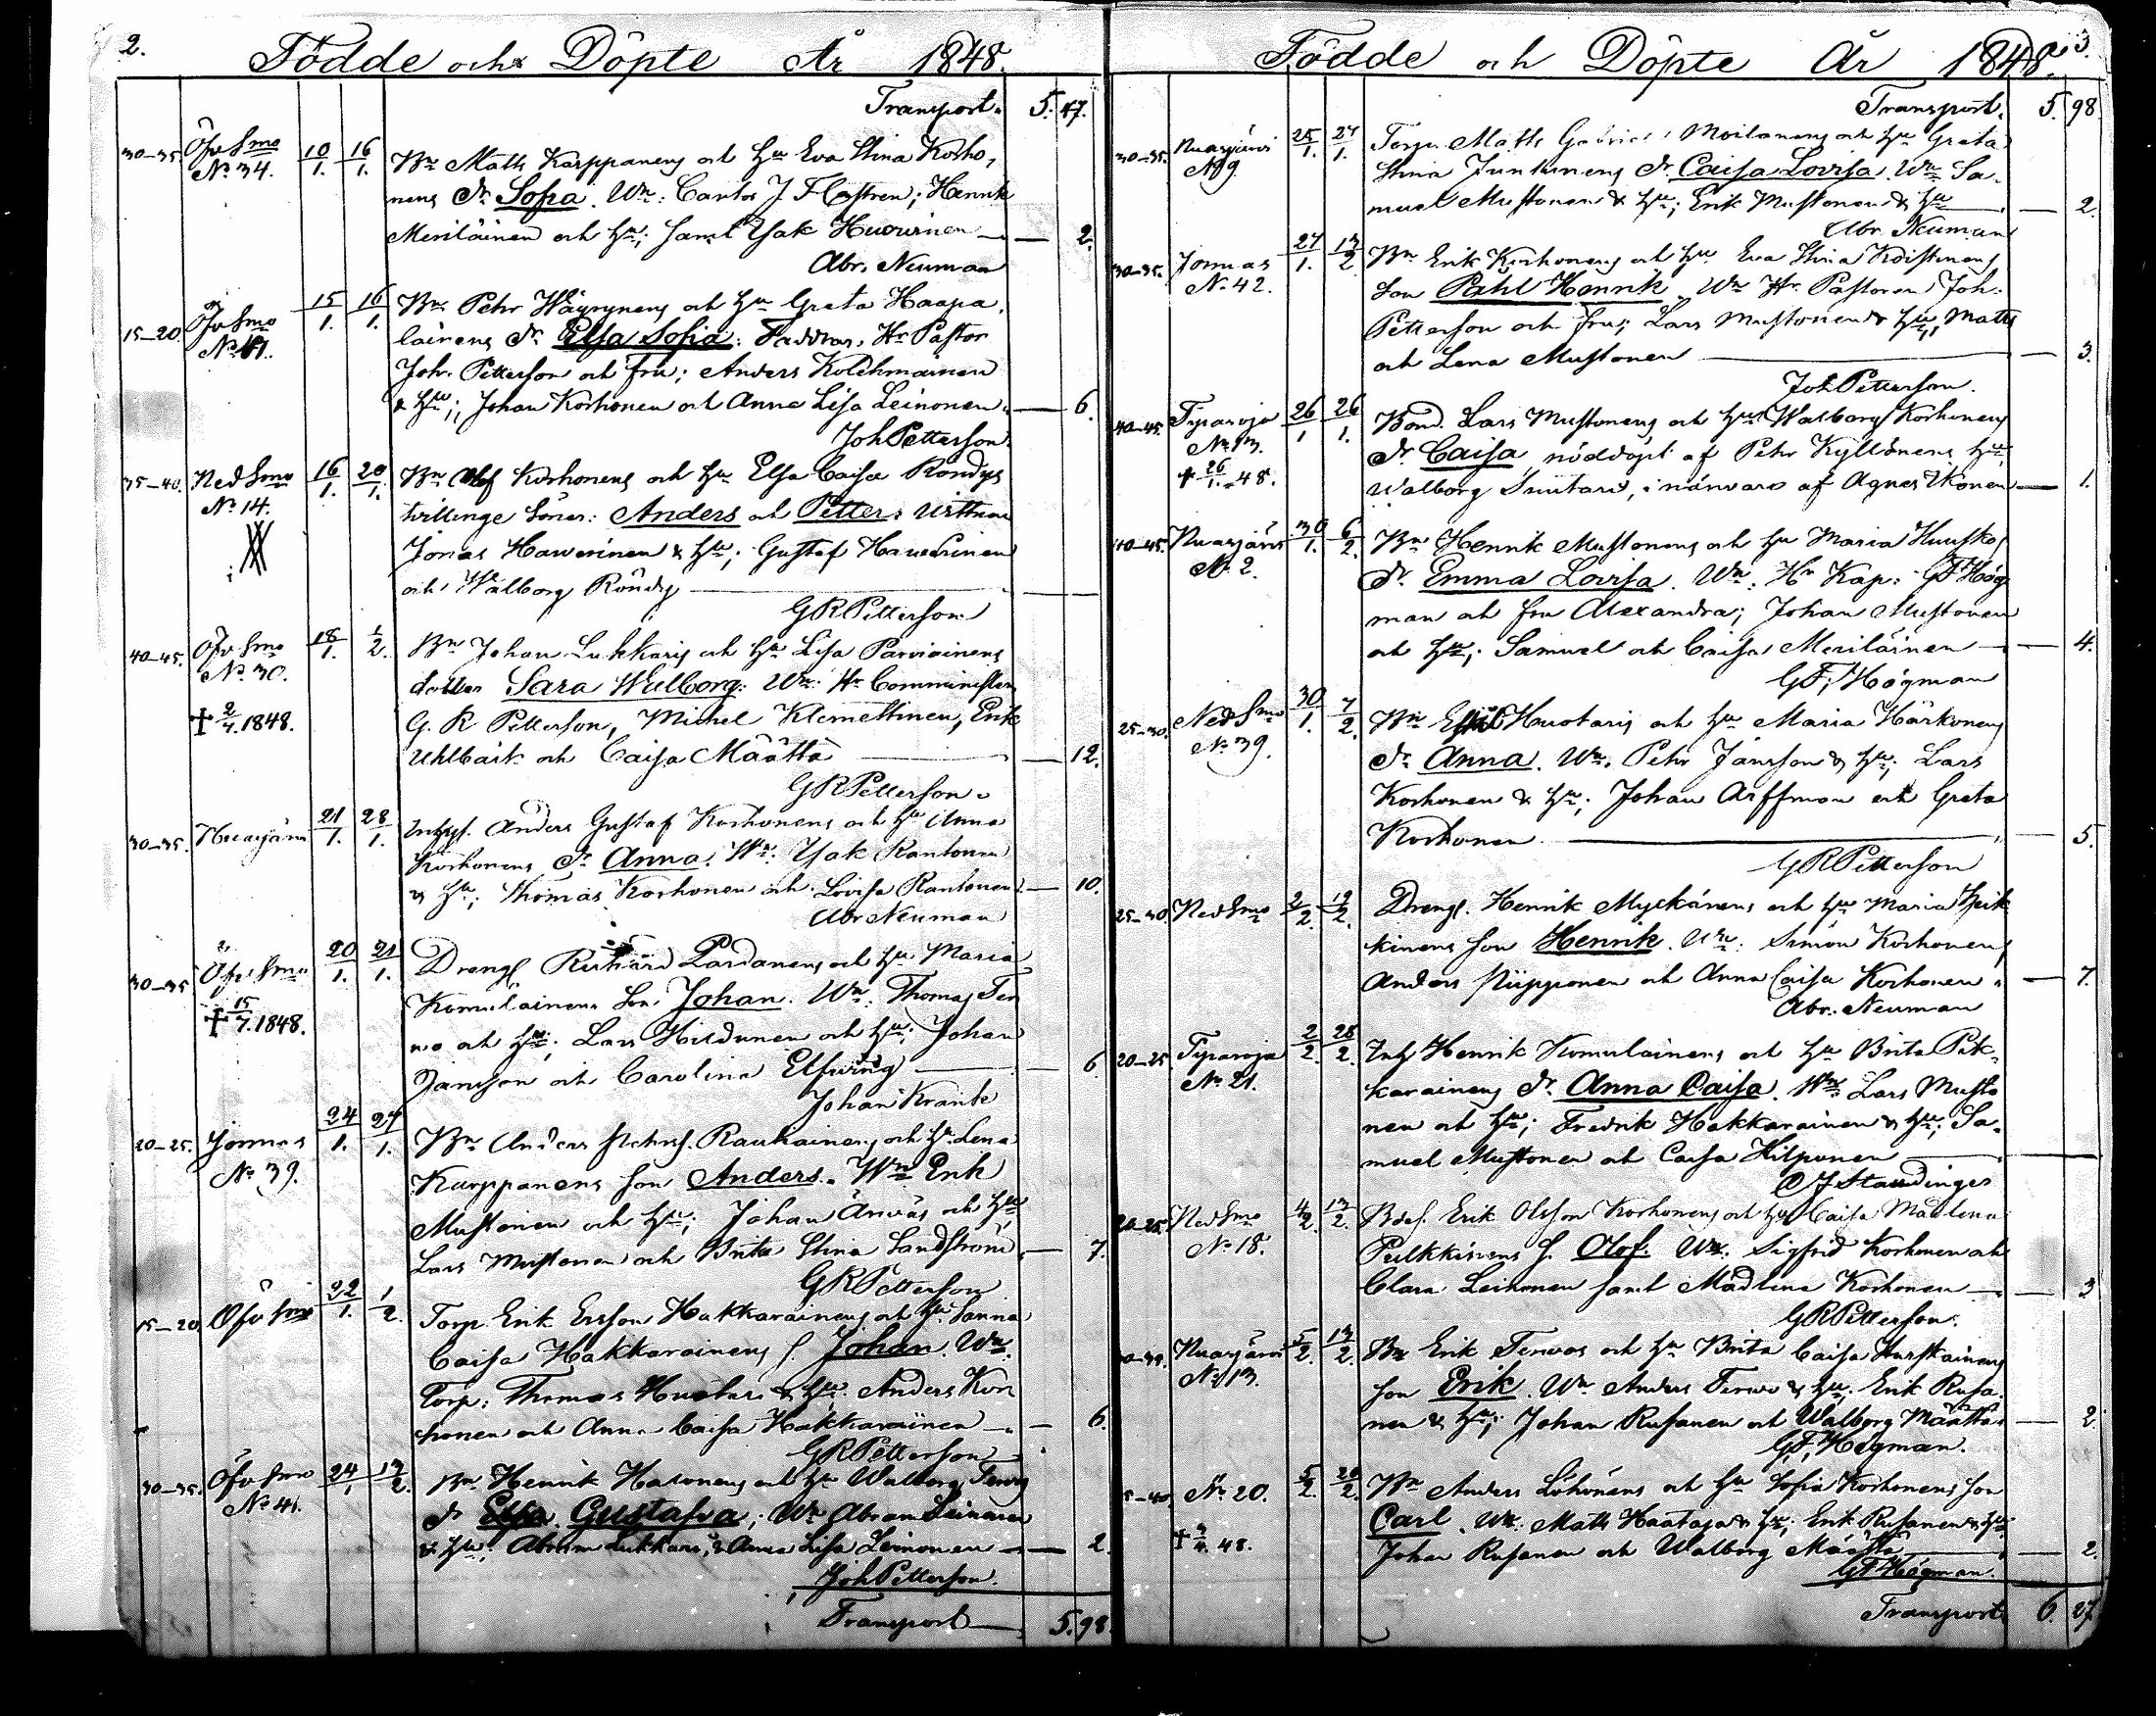 2.
Födde och Döpte År 1848.
Transport. 5. 47.
30–35. Öfv Smo 10/1. 16/1. Bn Matts Karppanens och hu Eva Stina Korho,
No 34. nens dr Sofia. Wn: Cantor J F Castren; Henrik
Meriläinen och hu; samt Isak Huovinen — 2.
Abr. Neuman
15–20. Öfv Smo 15/1. 16/1. Bn Pehr Wäyrynens och hu Greta Haapa,
lainens dr Elsa Sofia: Faddrar, Hr Pastor
Joh. Petterson och fru; Anders Kolehmainen
& hu; Johan Korhonen och Anna Lisa Leinonen. — 6.
Joh Petterson.
35–40. Ned Smo 16/1. 20/1. Bn Olof Korhonens och hu Elsa Caisa Röndys
No 14. tvillinge söner: Anders och Petter: Wittnen
Jonas Hawerinen & hu; Gustaf Hawerinen
och Walborg Röndy —
G R Petterson
40–45. Öfv Smo 18/1. 1/2. Bn Johan Lukkaris och hu Lisa Parviainens
No 30. dotter Sara Wulborg: Wn: Hr Comministern
+ 2/7. 1848. G. R Petterson, Michel Klemettinen, Erik
Uhlbäck och Caisa Määttä — 12.
G R Petterson.
30–35. Nuasjärvi 21/1. 28/1. Inhys. Anders Gustaf Korhonens och hu Anna
Korhonens dr Anna. Wn: Isak Rantonen
& hu; Thomas Korhonen och Lovisa Rantonen — 10.
Abr Neuman
30–35 Öfv Smo 20/1. 21/1. Dreng Richard Pardanens och hu Maria
+ 15/7. 1848. Komulainens son Johan. Wn: Thomas Ter
wo och hu; Lars Hildunen och hu; Johan
Jansson och Carolina Elfving — 6
Johan Krank
20–25. Jormas 24/1. 27/1. Bn Anders Pehrs. Rauhainens och hu Lena
No 39. Karppanens son Anders. Wn Erik
Mustonen och hu; Johan Änäs och hu
Lars Mustonen och Brita Stina Sandström — 7.
G R Petterson
15–20 Öfv Smo 22/1. 1/2. Torp. Erik Ersson Hakkarainens och hu Sanna
Caisa Hakkarainens s. Johan. Wn:
Torp: Thomas Huotari & hu; Anders Kor
honen och Anna Caisa Hakkarainen — 6.
G R Petterson
30–35. Öfv Smo 24/1 13/2. Bn Henrik Halonens och hu Walborg Terwos
No 41. dr Elsa Gustafva; Wn Abram Leinonen
& hu; Abram Lukkari, & Anna Lisa Leinonen — 2.
Joh Petterson.
Transport — 5. 98.
3.
Födde och Döpte År 1848.
Transport. 5. 98
30–35. Nuasjärvi 25/1. 27/1. Torp. Matts Gabriel Moilanens och hu Greta
No 9. Stina Juntunens dr Caisa Lovisa. Wn: Sa.
muel Mustonen & hu; Erik Mustonen & hu — 2.
Abr. Neuman
30–35. Jormas 27/1. 13/2 Bn Erik Korhonens och hu Eva Stina Koistinens
No 42. son Påhl Henrik Wn Hr Pastoren Joh.
Petterson och fru; Lars Mustonen & hu; Matts
och Lena Mustonen — 3.
Joh Petterson.
40–45. Tiparoja 26/1 26/1. Bond. Lars Mustonens och hus Walborg Korhonens
No 13. dr Caisa nöddöpt af Pehr Kyllönens hu
+ 26/1. 48. Walborg Suutari, i närvaro af Agnes Ikonen — 1.
40–45. Nuasjärvi 30/1. 6/2. Bn Henrik Mustonens och hu Maria Huusko,
No 2. dr Emma Lovisa. Wn: Hr Kap: G F Hög
man och fru Alexandra; Johan Mustonen
och hu; Samuel och Caisa Meriläinen — 4.
G F, Högman
25–30. Ned Smo 30/1. 7/2. Bn Huotaris och hu Maria Härkönens
No 39. dr Anna. Wn. Pehr Jansson & hu; Lars
Korhonen & hu; Johan Arffman och Greta
Korhonen. — 5.
G R Petterson
25–30 Ned Smo 2/2. 12/2. Drengs. Henrik Myckänens och hu Maria Heik
kinens son Henrik. Wn: Simon Korhonen,
Anders Piipponen och Anna Caisa Korhonen. — 7.
Abr. Neuman
20–25 Tiparoja 2/2. 28/2. Inh Henrik Komulainens och hu Brita Pak,
No 21. karainens dr Anna Caisa. Wn Lars Musto
nen och hu; Fredrik Hakkarainen & hu; Sa.
muel Mustonen och Caisa Hilponen —
C J Staudinger
20–25 Ned Smo 4/2. 13/2. Bdes. Erik Olsson Korhonens och hu Caisa Madlena
No 18. Pulkkinens s. Olof. Wn. Sigfrid Korhonen och
Clara Leinonen samt Madlena Korhonen — 3
G R Petterson.
Nuasjärvi 5/2. 13/2. Bn Erik Terwos och hu Brita Caisa Hurskainens
No 13. son Erik. Wn Anders Terwo & hu; Erik Rusa.
nen & hu; Johan Rusanen och Walborg Määttä — 2
G F, Högman.
No 20. 5/2. 20/2. Bn Anders Löhönens och hu Sofia Korhonens son
Carl. Wn: Matts Haataja & hu; Erik Rusanen & hu
+ 3/4. 48. Johan Rusanen och Walborg Määttä — 2.
G F Högman.
Transport 6. 27